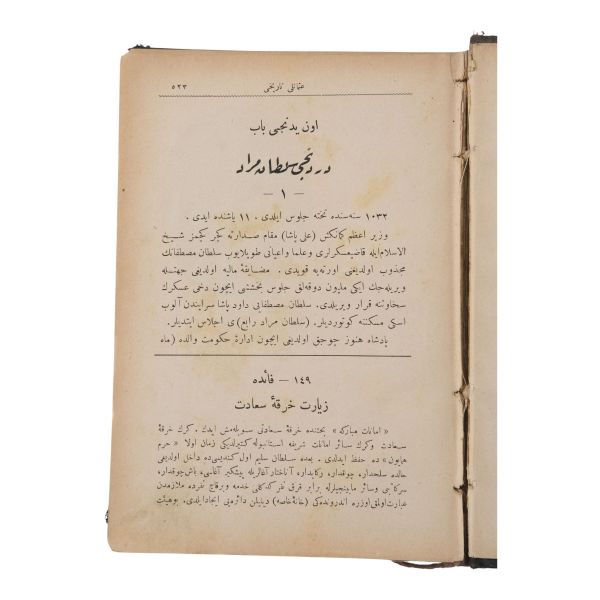 عثمانلی تاریخی ٥٢٣
اون یدنجی باب
دردنجی سلطان مراد
— ١ —
١٠٣٢ سنه‌سنده تخته جلوس ایلدی . ١١ یاشنده ایدی .
وزیر اعظم کمانکش (علی پاشا) مقام صدارته کچر کچمز شیخ
الاسلام‌ایله قاضیعسکرلری وعلما واعیانی طوپلایوب سلطان مصطفانك
مجذوب اولدیغنی اورته‌یه قویدی . مضایقهٔ مالیه اولدیغی جهتله
ویریله‌جك ایکی ملیون دوقه‌لق جلوس بخششی ایچون دخی عسکرك
سخاوتنه قرار ویریلدی. سلطان مصطفایی داود پاشا سرایندن آلوب
اسکی مسکننه کوتوردیلر. (سلطان مراد رابع) ی اجلاس ایتدیلر.
پادشاه هنوز چوجق اولدیغی ایچون ادارهٔ حکومت والده (ماه
١٤٩ — فائده
زیارت خرقهٔ سعادت
« امانات مبارکه » بحثنده خرقهٔ سعادتی سویله‌مش ایدك . کرك خرقهٔ
سعادت وکرك سائر امانات شریفه استانبوله کتیرلدیکی زمان اولا « حرم
همایون » ده حفظ ایدلدی . بعده سلطان سلیم اول کندیسی‌ده داخل اولدیغی
حالده سلحدار، چوقدار، رکابدار، آناختار آغالریله پیشکیر آغاسی، باش‌چوقدار،
سرکاتبی وسائر مابینجیلرله برابر قرق نفر کدکلی خدمه وبرقاچ نفرده ملازمدن
عبارت‌اولمق‌اوزره اندرونده‌کی (خانهٔ خاصه) دینیلن دائره‌یی ایجادایلدی. بوهیئت